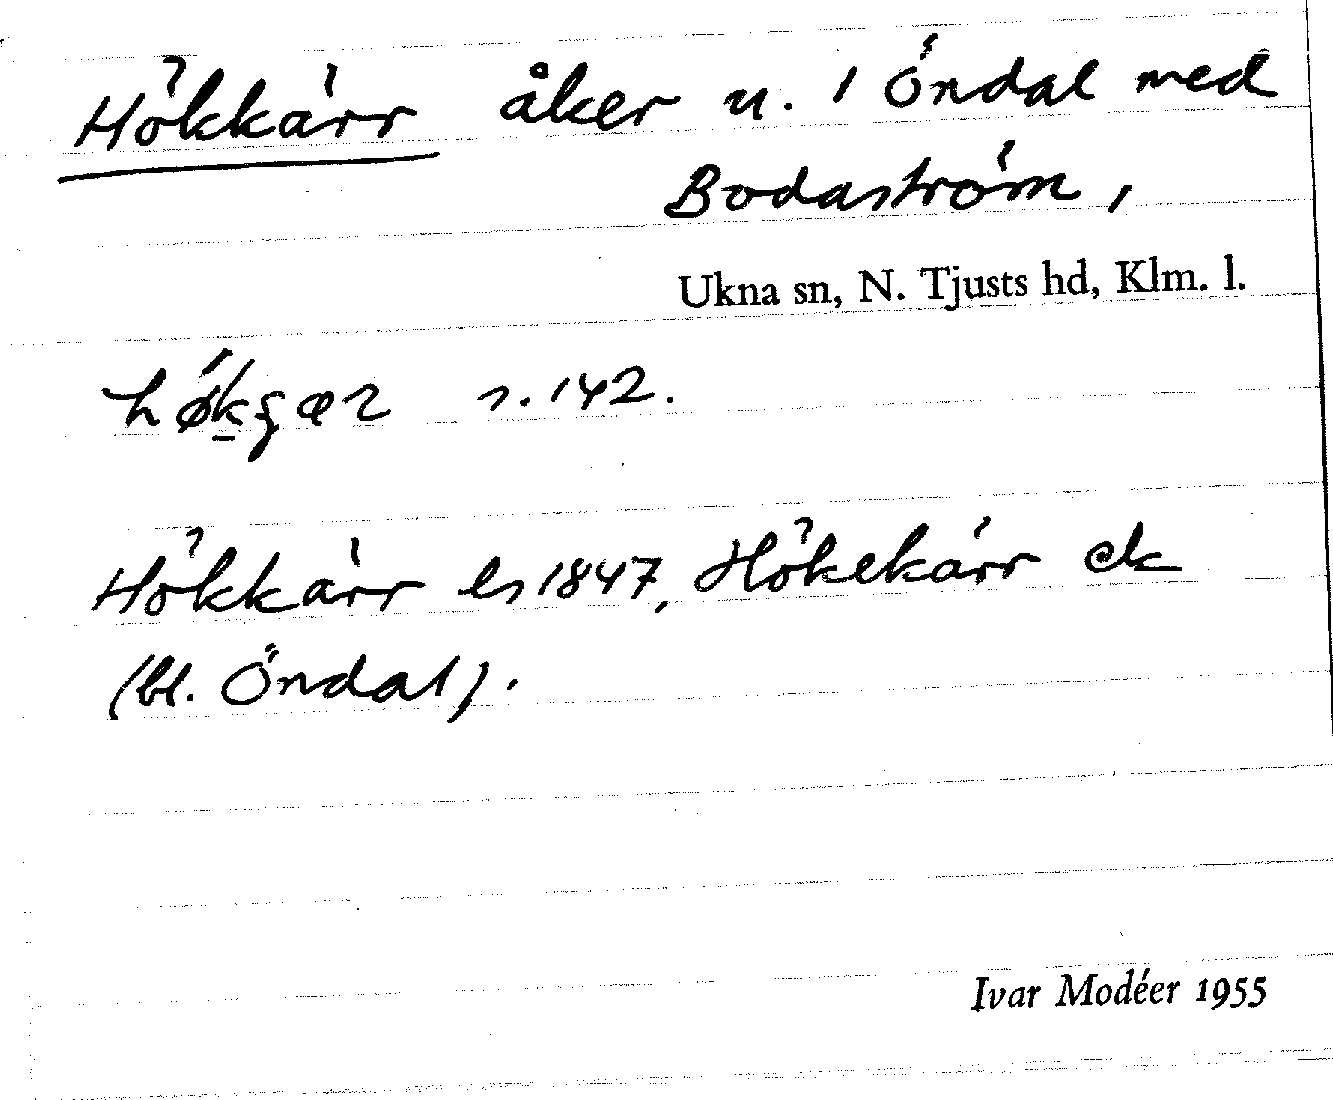 Hökkärr åker n. i Öndal med
Bodaström,
Ukna sn, N. Tjusts hd, Klm. l.
s. 142.
Hökkärr ls 1847, Hökekärr ek
(bl. Öndal).
Ivar Modéer 1955